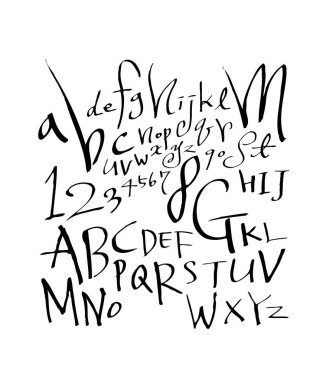 a b defg h ijkl m
c nopqr st
uvwxyz 90
123 4567 8 HIJ
ABCDEF G KL
PQRSTUV
MNO WXYZ